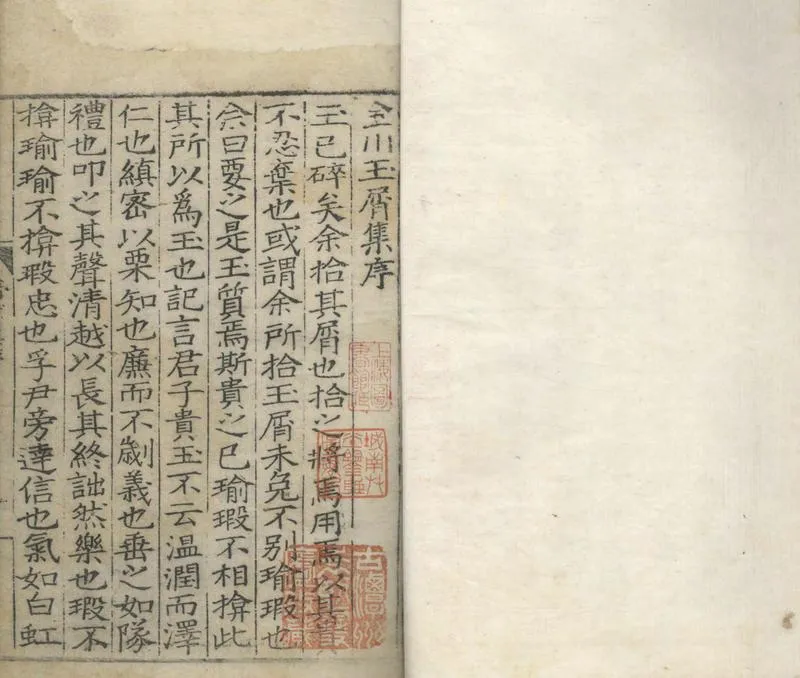 金川玉屑集序
玉已碎矣余拾其屑也拾之將焉用焉以其
不忍棄也或謂余所拾玉屑未免不別瑜瑕也
余曰要之是玉質焉斯貴之已瑜瑕不相揜此
其所以爲玉也記言君子貴玉不云温潤而澤
仁也縝密以栗知也廉而不劌義也垂之如隊
禮也叩之其聲清越以長其終詘然樂也瑕不
揜瑜瑜不揜瑕忠也孚尹旁達信也氣如白虹